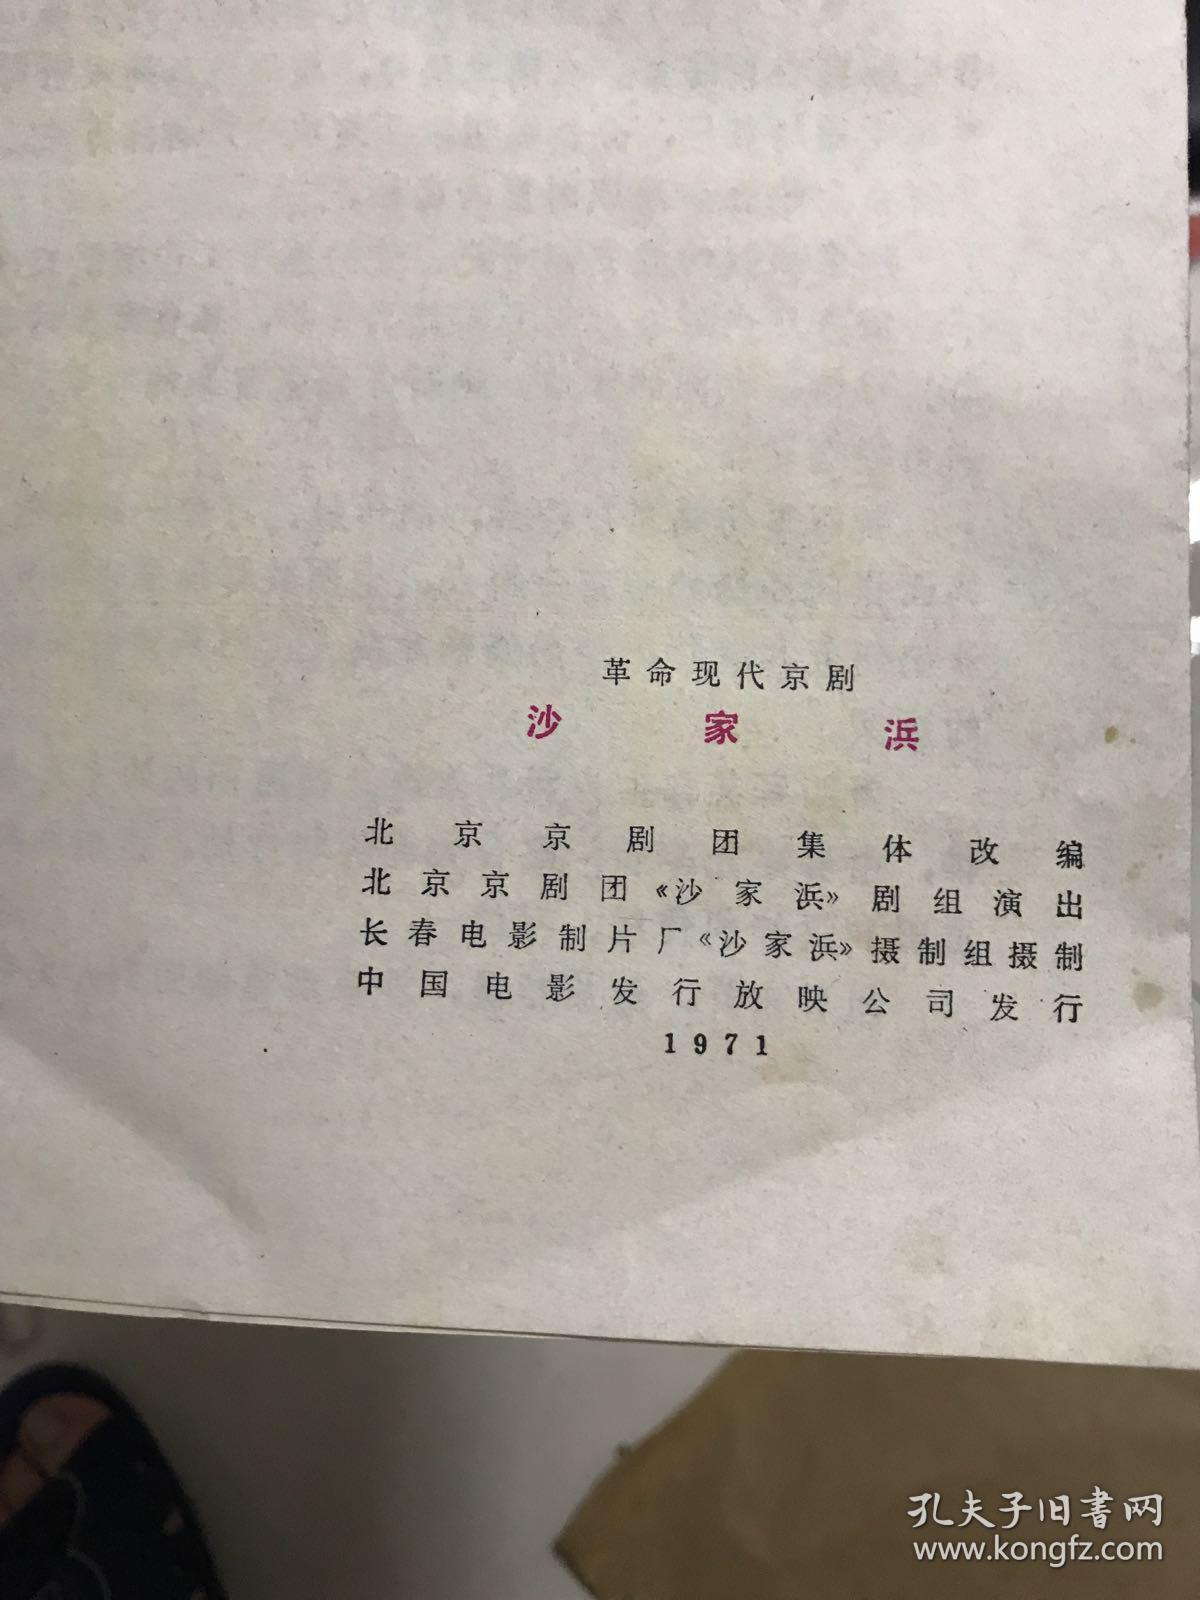 革命现代京剧
沙家浜
北京京剧团集体改编
北京京剧团《沙家浜》剧组演出
长春电影制片厂《沙家浜》摄制组摄制
中国电影发行放映公司发行
1971
孔夫子旧书网
www.kongfz.com